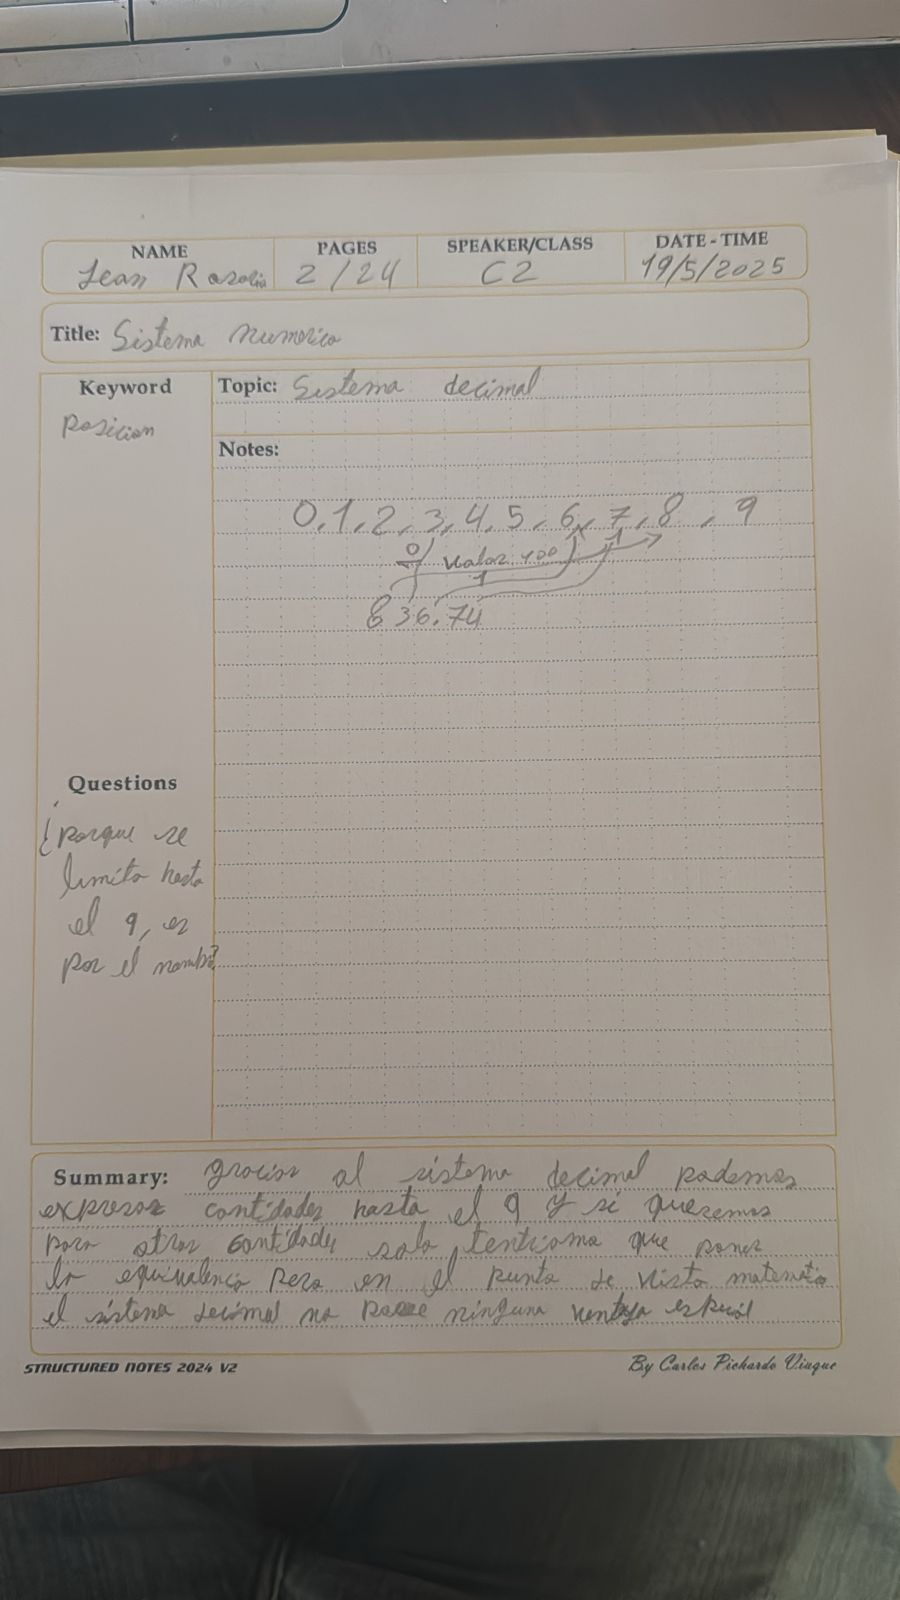 NAME PAGES SPEAKER/CLASS DATE-TIME
Jean Rosalia 2/24 C2 19/5/2025
Title: Sistema numerico
Keyword Topic: Sistema decimal
Posicion
Notes:
0,1,2,3,4,5,6,7,8,9
valor 100
836.74
Questions
¿porque se
limito hasta
el 9, es
por el nombre?
Summary: gracias al sistema decimal podemos
expresar cantidades hasta el 9 y si queremos
para otras cantidades solo que poner
la equivalencia pero en el punto de vista
el sistema decimal no posee ninguna ventaja
STRUCTURED NOTES 2024 V2 By Carlos Pichardo Viuque